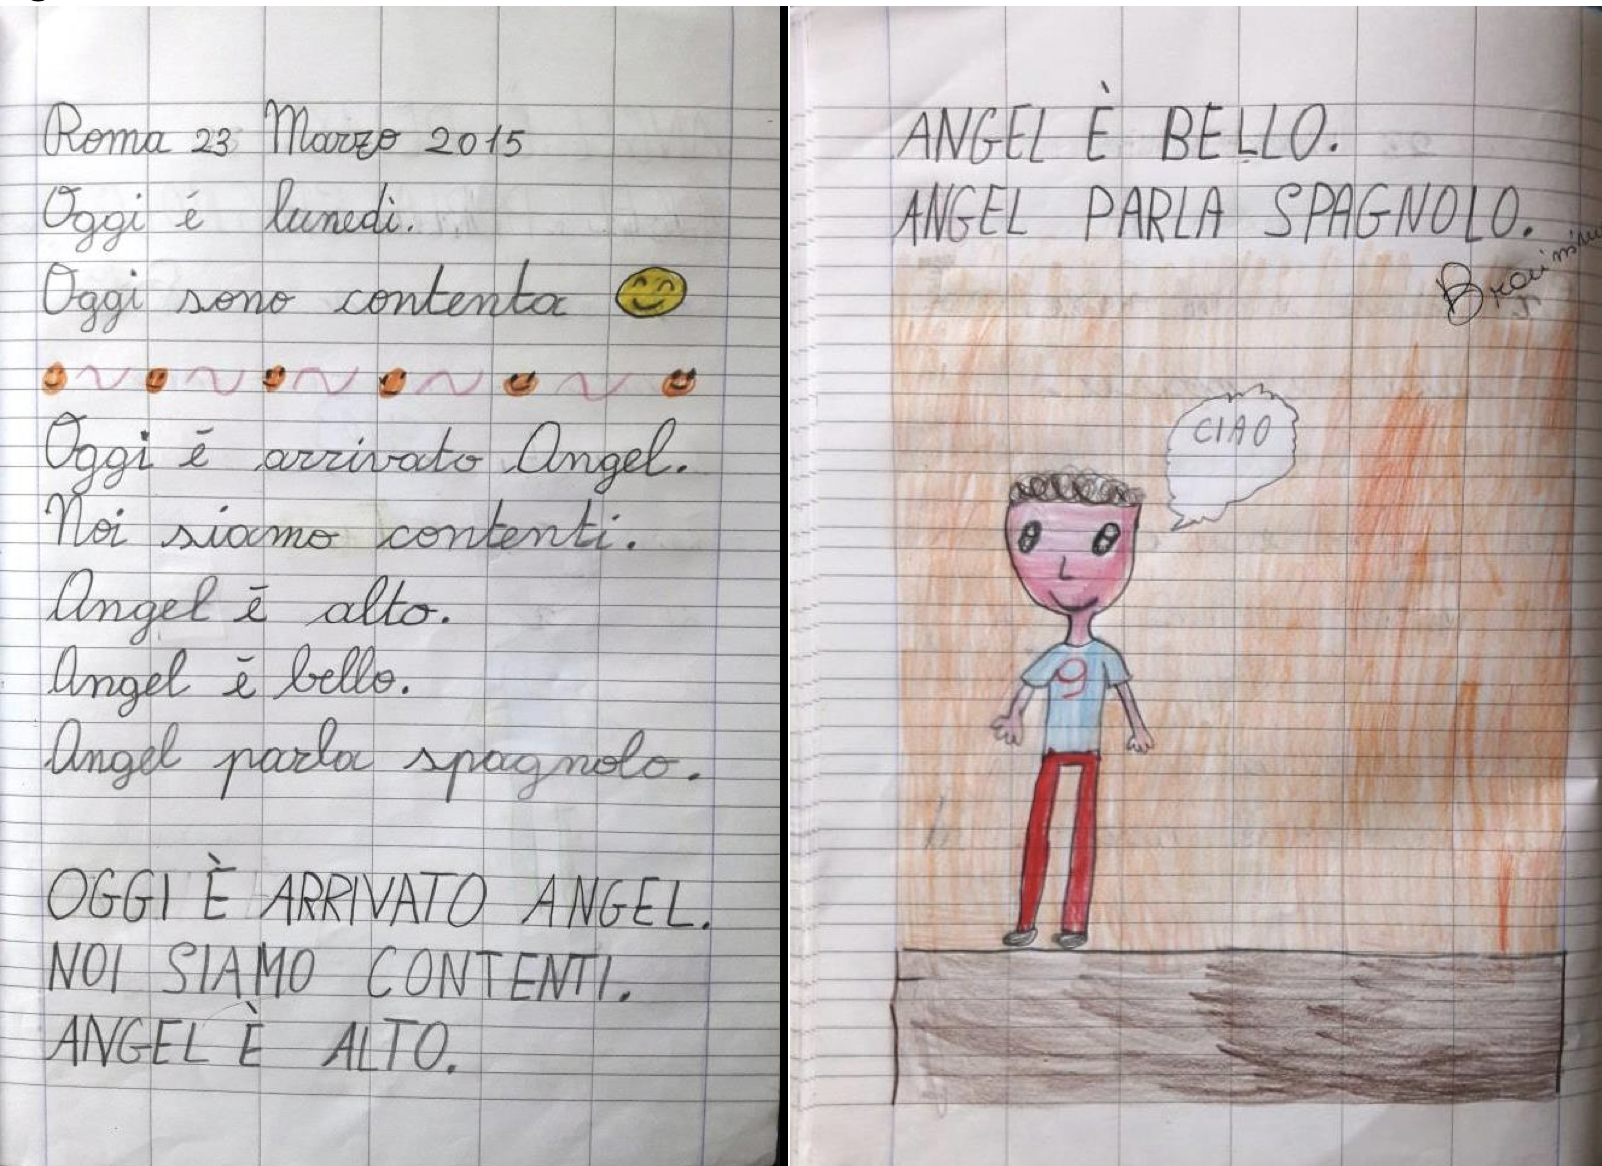 Roma 23 Marzo 2015
Oggi é lunedì.
Oggi sono contenta
Oggi ē arrivato Angel.
Noi siamo contenti.
Angel ē alto.
Angel ē bello.
Angel parla spagnolo.
OGGI È ARRIVATO ANGEL.
NOI SIAMO CONTENTI.
ANGEL È ALTO.
ANGEL È BELLO.
ANGEL PARLA SPAGNOLO.
CIAO
9